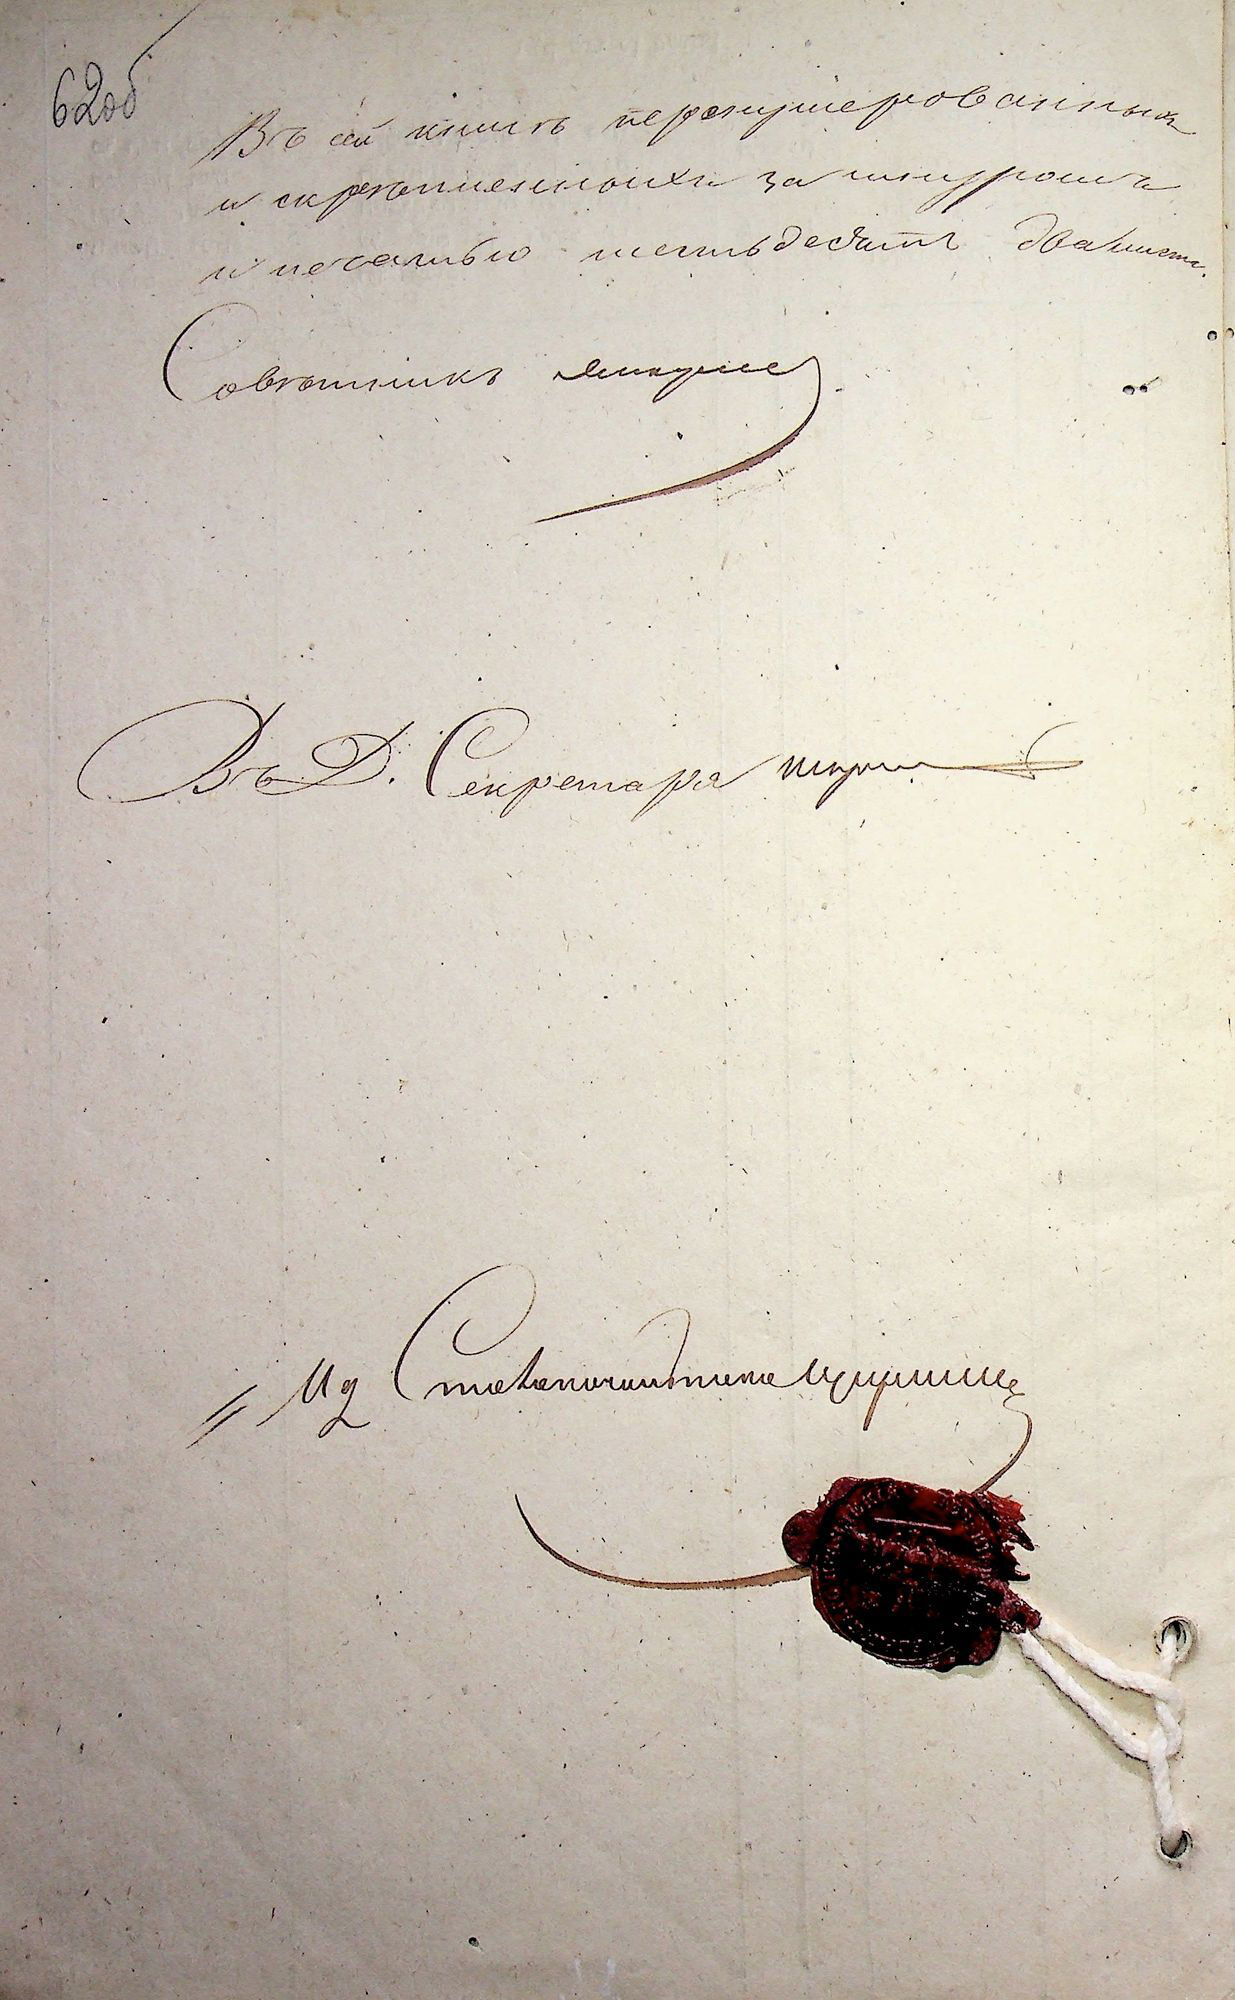 62об
Въ сей книгѣ перенумерованныхъ
и скрѣпленныхъ за шнуромъ
и печатью шестьдесятъ два листа.
Совѣтникъ
Въ Д. Секретаря
Ид Столоначальника